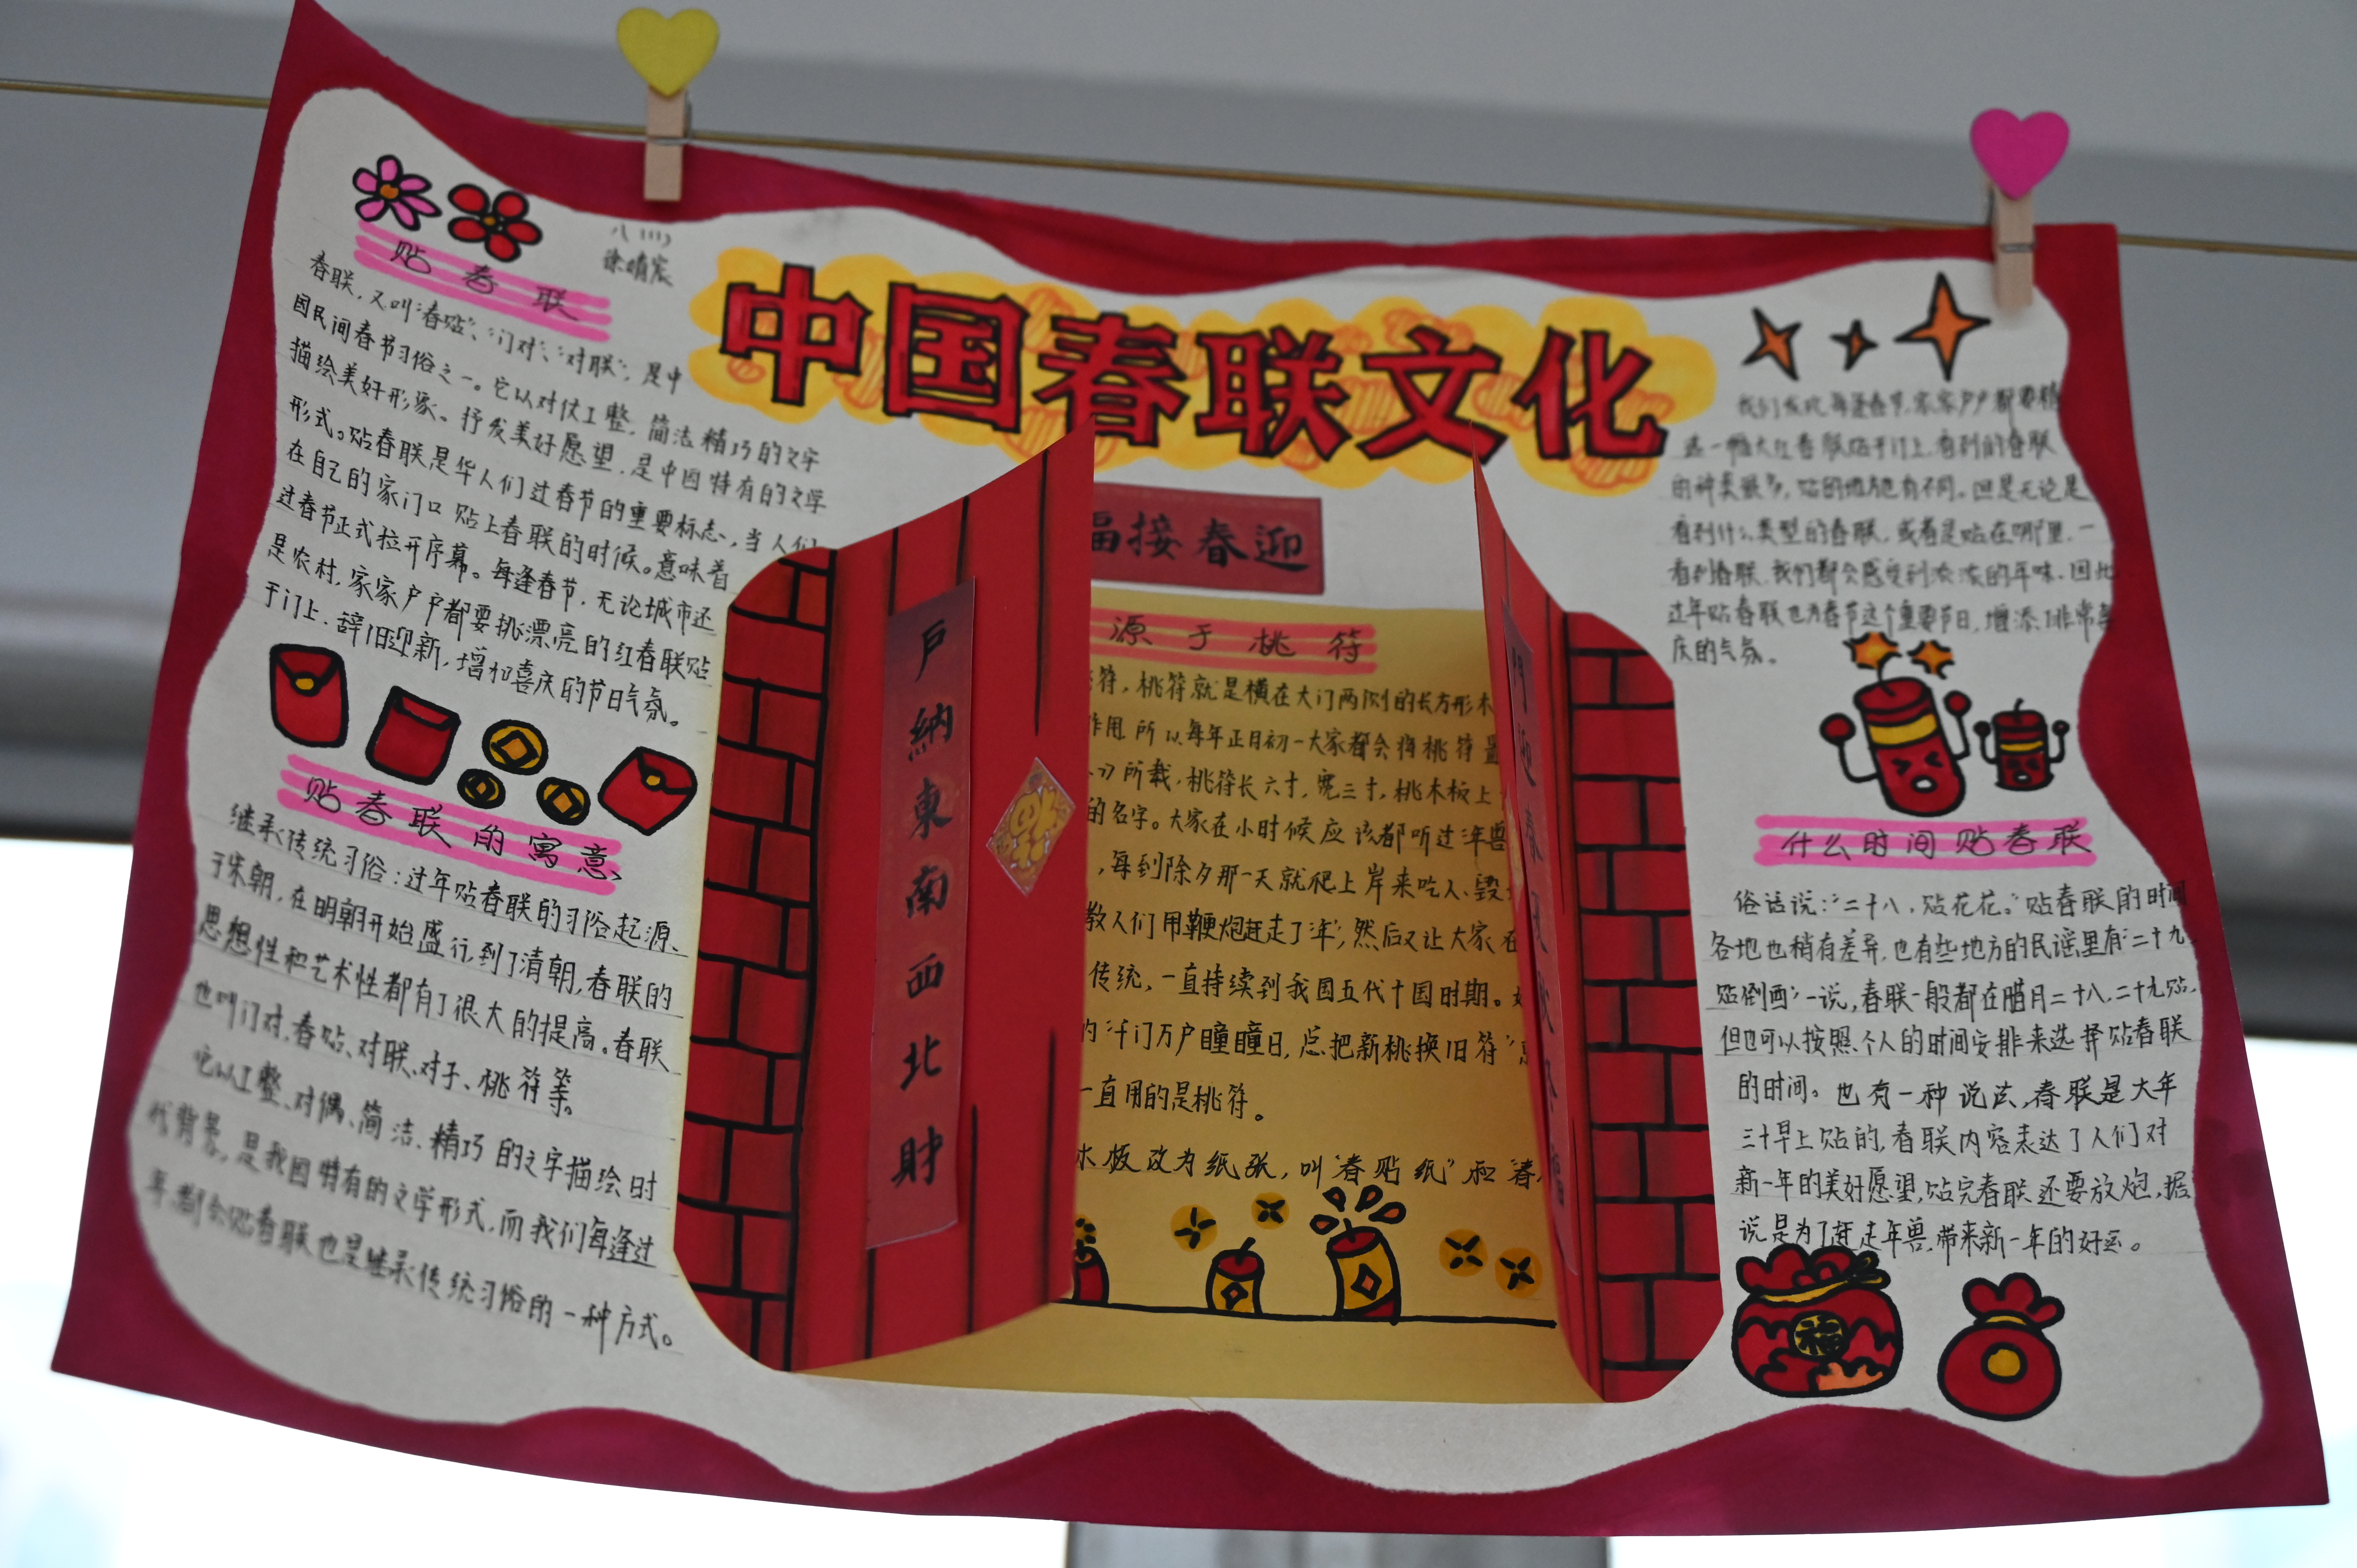 中国春联文化
八(11)
贴春联
春联，又叫“春贴”、“门对”、“对联”，是中
国民间春节习俗之一。它以对仗工整，简洁精巧的文字
描绘美好形象、抒发美好愿望，是中国特有的文学
形式。贴春联是华人们过春节的重要标志，当人们
在自己的家门口贴上春联的时候。意味着
过春节正式拉开序幕。每逢春节，无论城市还
是农村，家家户户都要挑漂亮的红春联贴
于门上，辞旧迎新，增加喜庆的节日气氛。
贴春联的寓意
继承传统习俗：过年贴春联的习俗起源
于宋朝，在明朝开始盛行，到了清朝，春联的
思想性和艺术性都有了很大的提高。春联
也叫门对、春贴、对联、对子、桃符等。
它以工整、对偶、简洁、精巧的文字描绘时
代背景，是我国特有的文学形式，而我们每逢过
年，都会贴春联也是继承传统习俗的一种方式。
福接春迎
户納東南西北財
福
門迎春夏秋冬福
源于桃符
符，桃符就是横在大门两侧的长方形木
作用，所以每年正月初一大家都会将桃符置
所载，桃符长六寸，宽三寸，桃木板上
的名字。大家在小时候应该都听过“年兽
，每到除夕那一天就爬上岸来吃人、毁
教人们用鞭炮赶走了“年”，然后又让大家在
传统，一直持续到我国五代十国时期。
的“千门万户瞳瞳日，总把新桃换旧符”
一直用的是桃符。
木板改为纸张，叫“春贴纸”和“春
我们发现每逢春节，家家户户都要精
选一幅大红春联贴于门上，看到的春联
的种类很多，贴的地方也有不同。但是无论是
看到什么类型的春联，或者是贴在哪里，一
看到春联，我们都会感受到浓浓的年味，因此
过年贴春联也为春节这个重要节日，增添了非常喜
庆的气氛。
什么时间贴春联
俗话说：“二十八，贴花花。”贴春联的时间
各地也稍有差异，也有些地方的民谣里有“二十九
贴倒酉”一说，春联一般都在腊月二十八、二十九贴，
但也可以按照个人的时间安排来选择贴春联
的时间。也有一种说法，春联是大年
三十早上贴的，春联内容表达了人们对
新一年的美好愿望，贴完春联还要放炮，据
说是为了赶走年兽，带来新一年的好运。
福